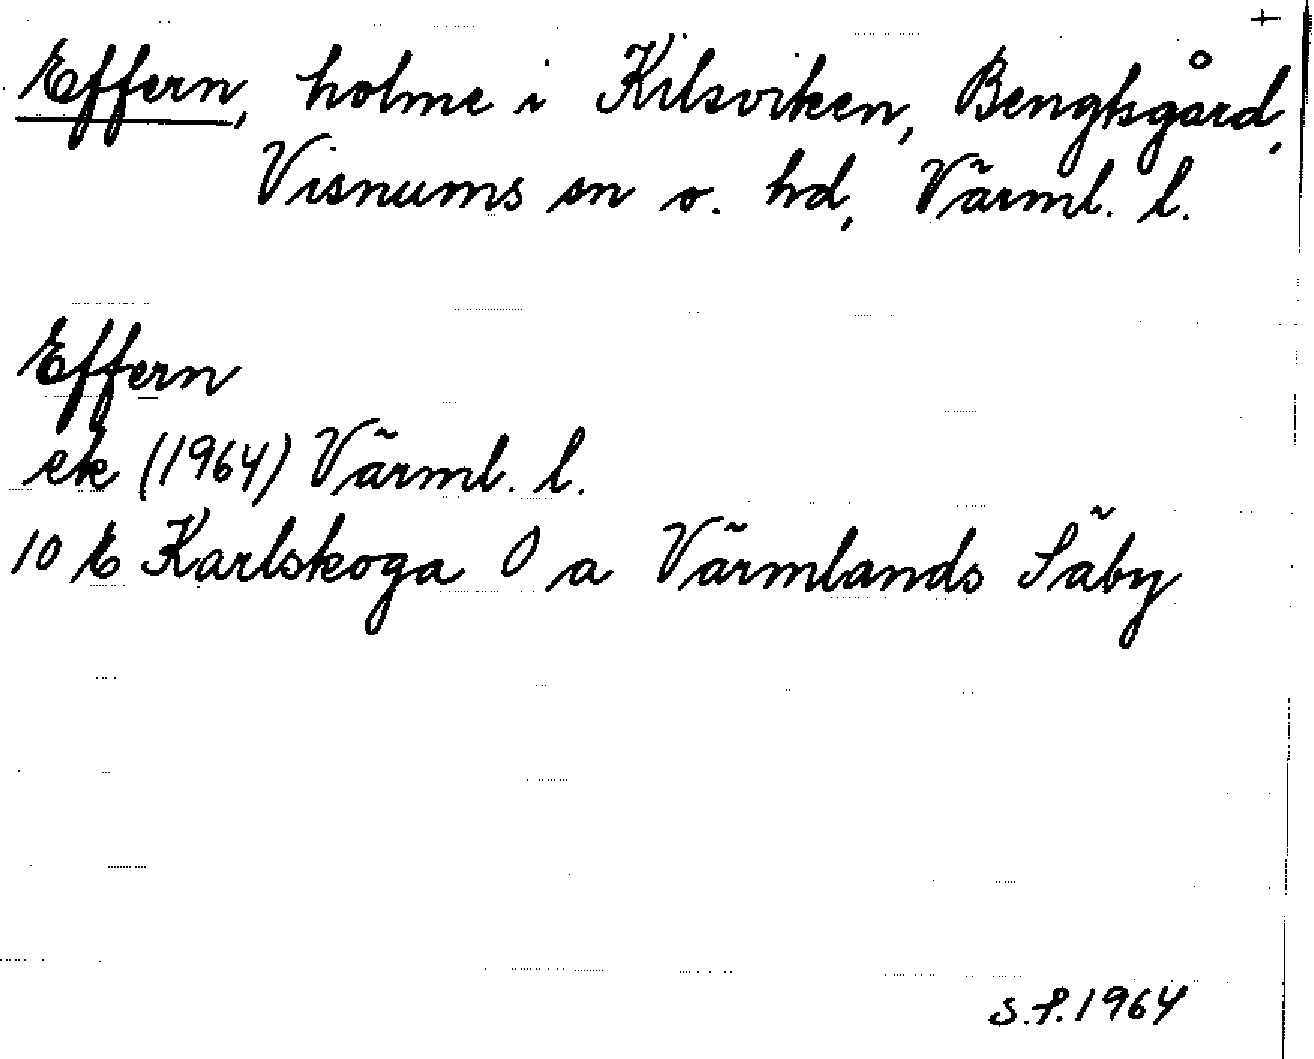 +
Effern, holme i Kilsviken, Bengtsgård,
Visnums sn o. hd, Värml. l.
Effern
ek (1964) Värml. l.
10 E Karlskoga O a Värmlands Säby
S.F. 1964